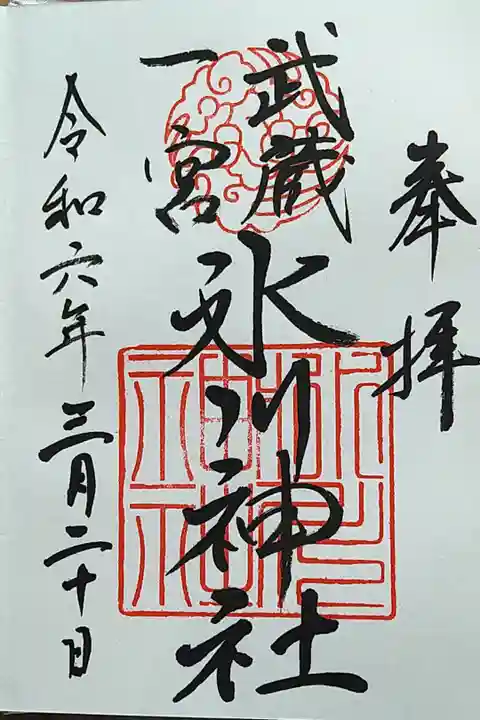 奉拝
武蔵
一宮
氷川神社
令和六年三月二十日
氷川神社